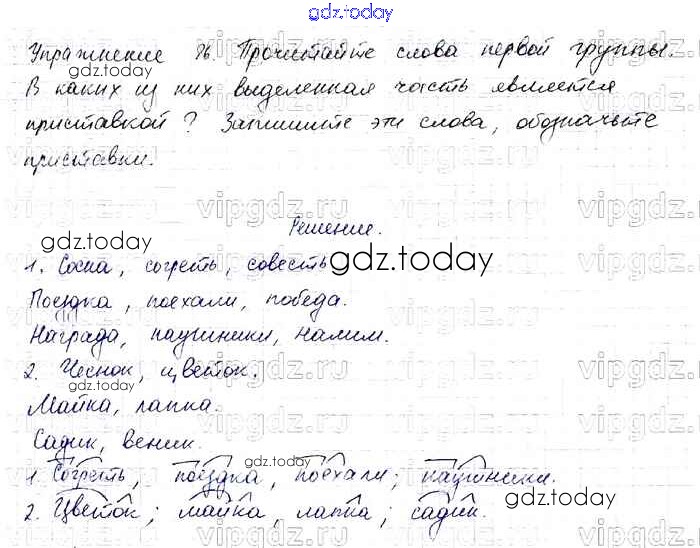 gdz.today
Упражнение 86. Прочитайте слова первой группы.
В каких из них выделенная часть является
приставкой? Запишите эти слова, обозначьте
приставки.
Решение.
1. Сосна, согреть, совесть
Поездка, поехали, победа.
Награда, наушники, налим.
2. Чеснок, цветок.
Майка, лапка.
Садик, веник.
1. Согреть, поездка, поехали; наушники.
2. Цветок; майка, лапка; садик.
gdz.today
gdz.today
gdz.today
gdz.today
gdz.today
gdz.today
gdz.today
vipgdz.ru
vipgdz.ru
vipgdz.ru